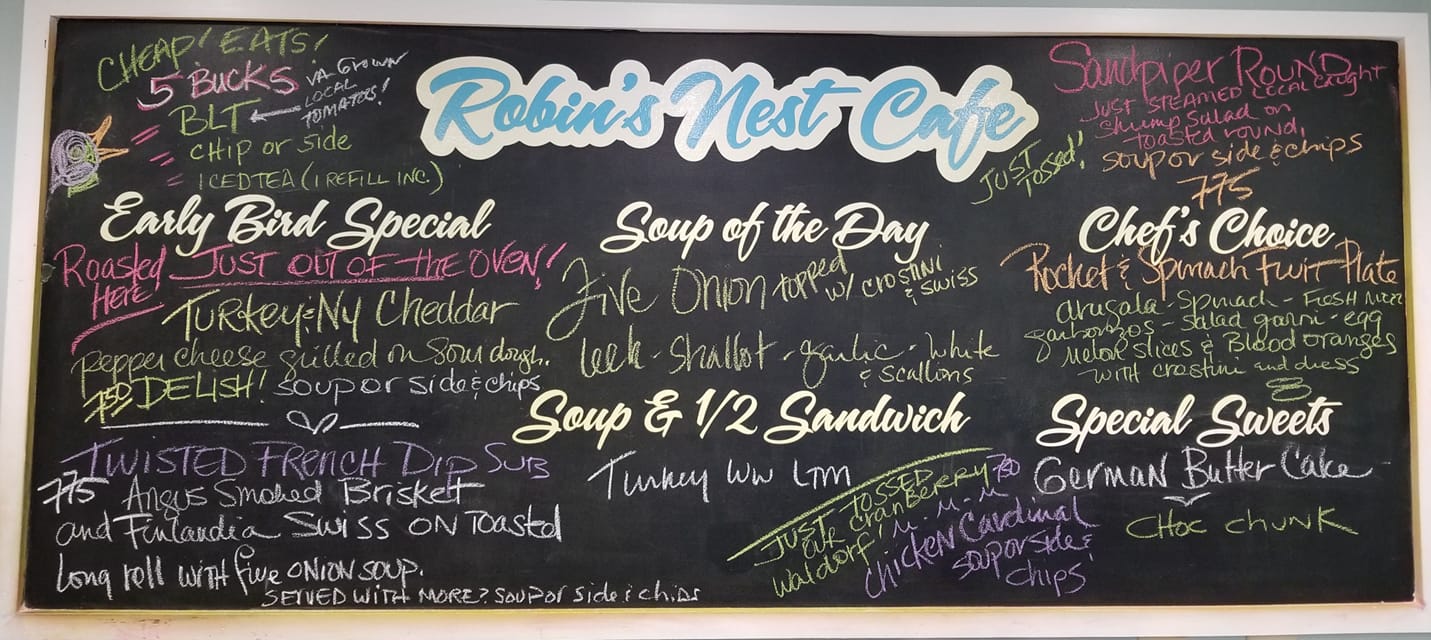 CHEAP! EATS!
5 BUCKS
BLT
VA-GROWN
LOCAL
TOMATOES!
CHIP or side
ICED TEA (1 REFILL INC.)
Robin's Nest Cafe
Sandpiper ROUND
JUST STEAMED LOCAL caught
shrimp salad on
toasted round,
soup or side & chips
775
JUST
TOSSED!
Early Bird Special
Roasted
HERE
JUST OUT OF the OVEN!
Turkey & NY Cheddar
pepper cheese grilled on Sour dough.
750 DELISH! soup or side & chips
TWISTED FRENCH DIP SUB
775 Angus Smoked Brisket
and Finlandia Swiss ON Toasted
Long roll WITH five ONION SOUP.
SERVED WITH MORE? soup or side & chips
Soup of the Day
Five Onion topped
w/ crostini
& swiss
leek - shallot - garlic - white
& scallions
Soup & 1/2 Sandwich
Turkey WW LTM
JUST TOSSED
our cranberry
waldorf!
750
m. m. m
chicken Cardinal
soup or side &
chips
Chef's Choice
Rocket & Spinach Fruit Plate
arugala - Spinach - Fresh
garbonzos - salad garni - egg
melon slices & Blood oranges
with crostini and dress
Special Sweets
German Butter Cake
CHOC CHUNK